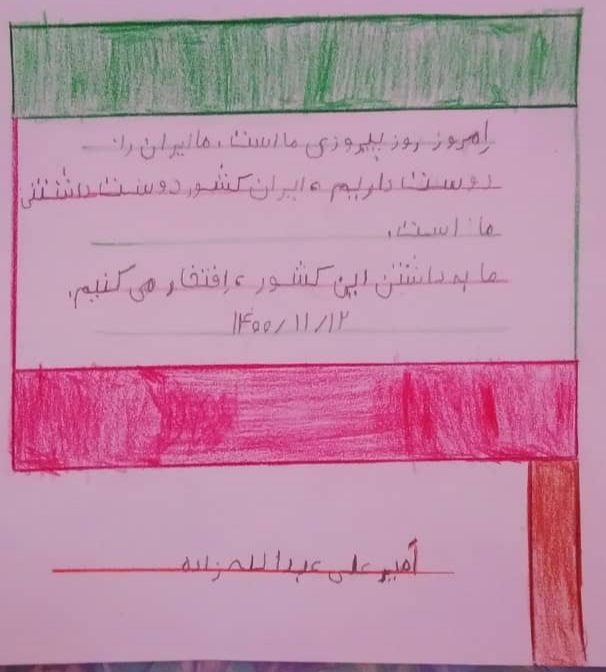 امروز روز پیروزی ما است، ما ایران را
دوست داریم، ایران کشور دوست داشتنی
ما است.
ما به داشتن این کشور، افتخار می کنیم.
۱۴۰۰/۱۱/۱۲
أمیر علی عبدالله زاده